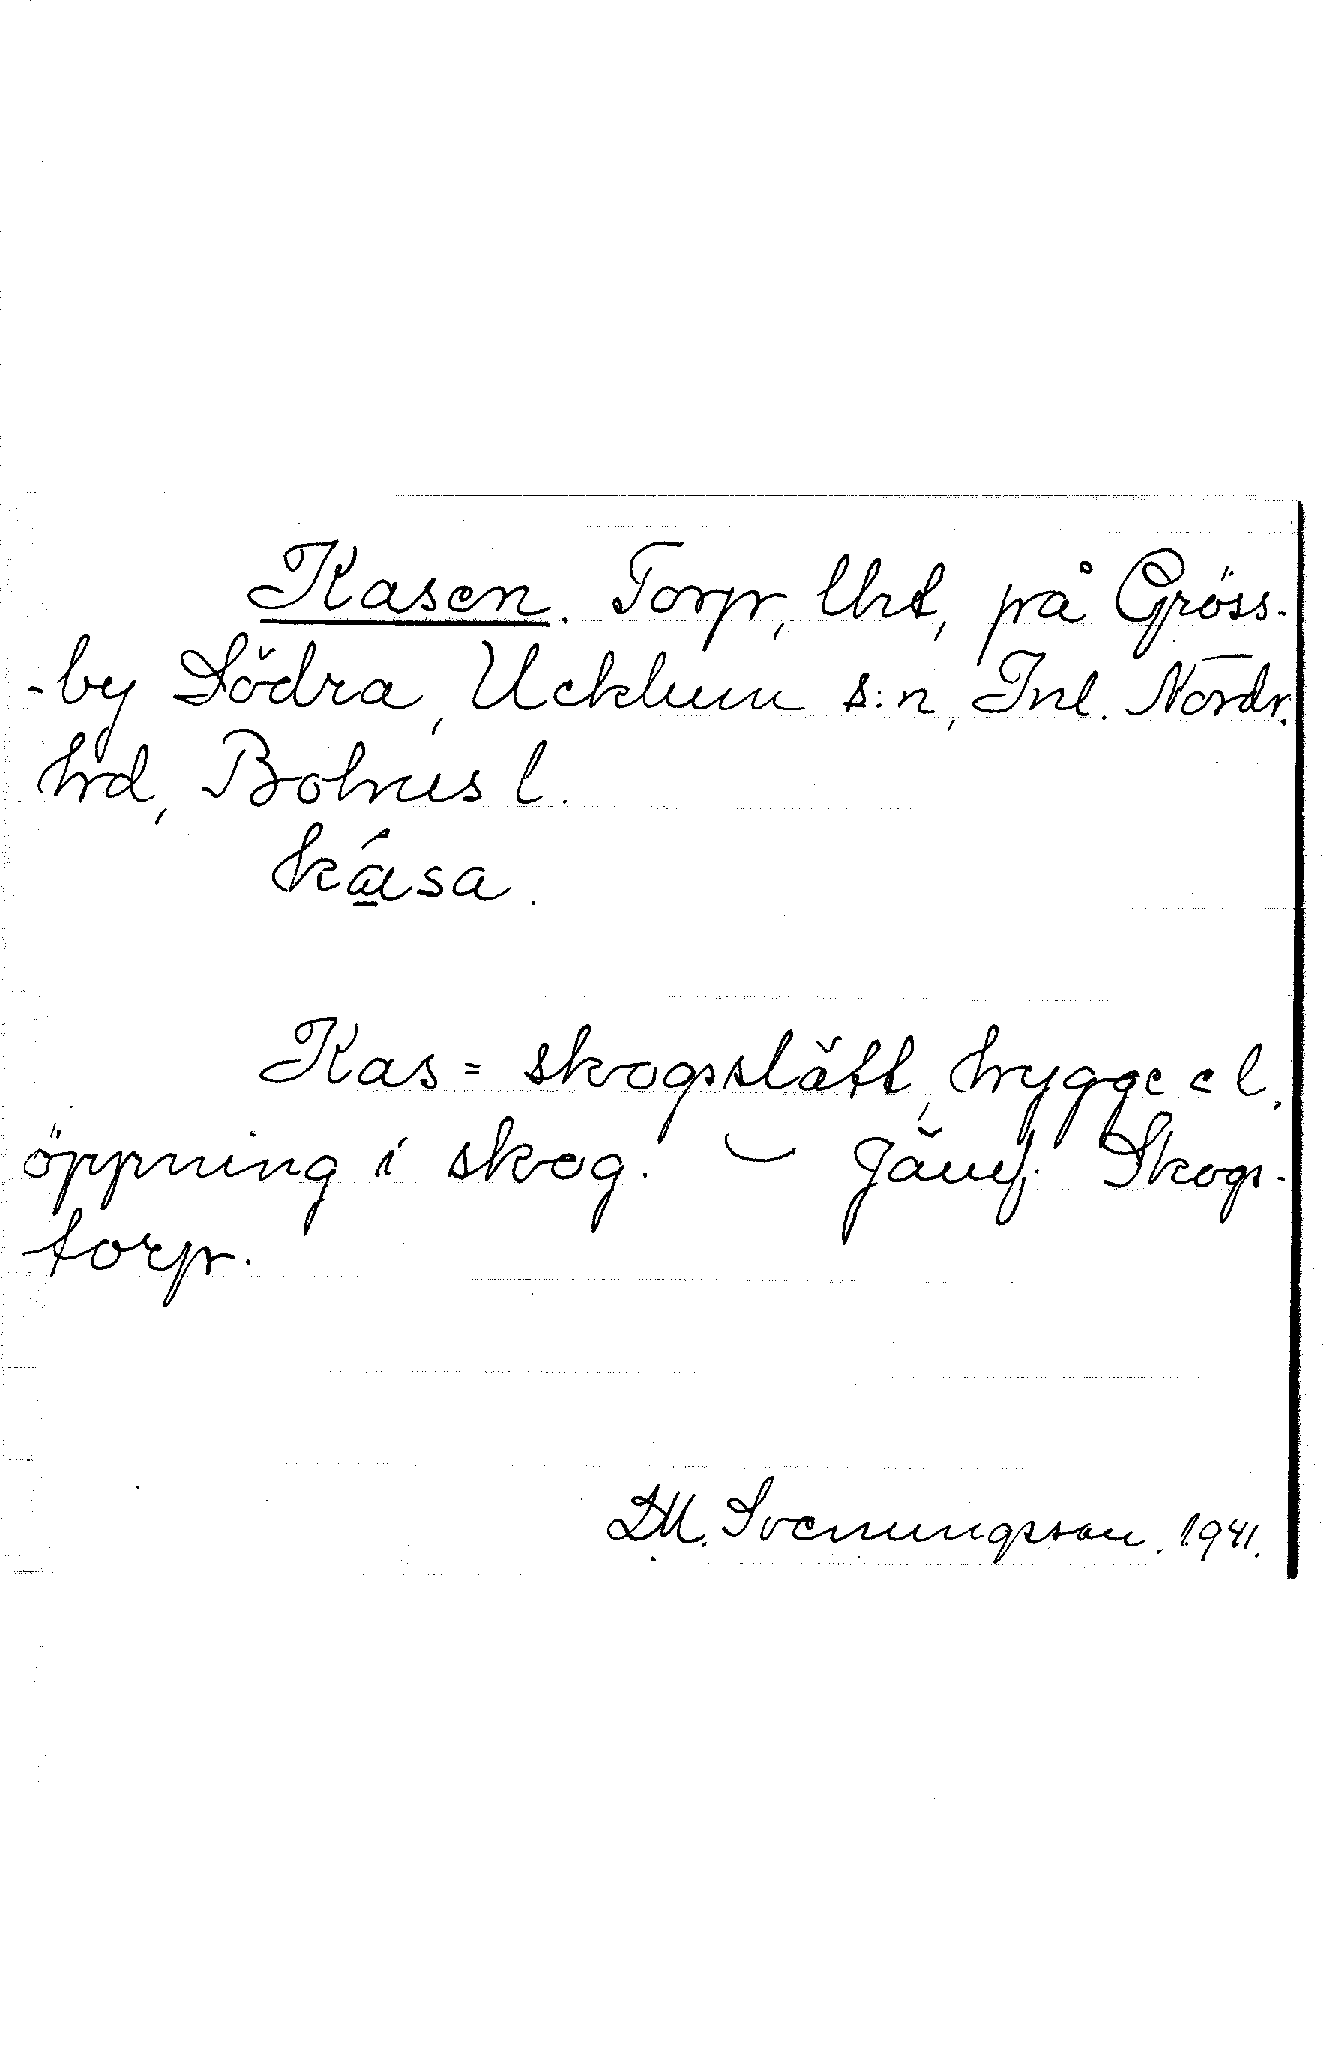 Kasen. Torp, lht, på Gröss-
-by Södra, Ucklum s:n, Inl. Nordr.
hrd, Bohus l.
ká̱sa.
Kas = skogsslätt, hygge el.
öppning i skog. – Jämf. Skogs-
torp.
D.M. Svenungsson. 1941.